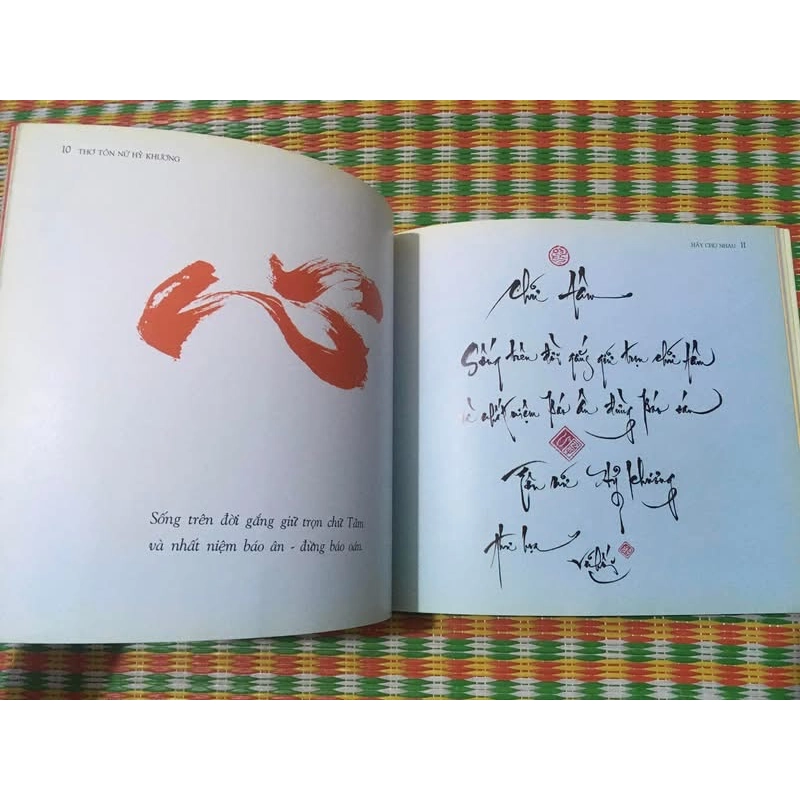 10 THƠ TÔN NỮ HỶ KHƯƠNG
心
Sống trên đời gắng giữ trọn chữ Tâm
và nhất niệm báo ân - đừng báo oán.
HÃY CHO NHAU 11
Chữ Tâm
Sống trên đời gắng giữ trọn chữ Tâm
và nhất niệm báo ân đừng báo oán
Tôn nữ Hỷ Khương
thư họa